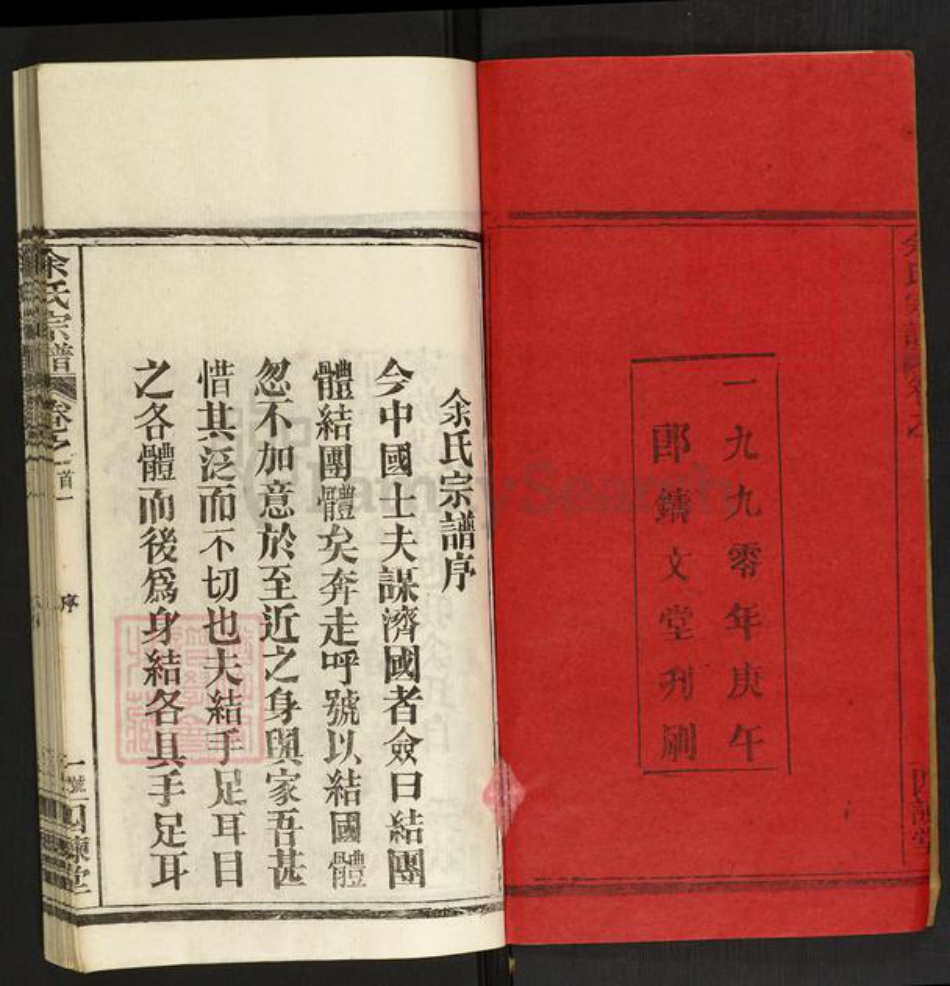 一九九零年庚午
郎鐫文堂刋刷
余氏宗譜序
今中國士夫謀濟國者僉曰結團
體結團體矣奔走呼號以結國體
忽不加意於至近之身與家吾甚
惜其泛而不切也夫結手足耳目
之各體而後爲身結各具手足耳
余氏宗譜 卷之首一 序 一號 四諫堂
FamilySearch